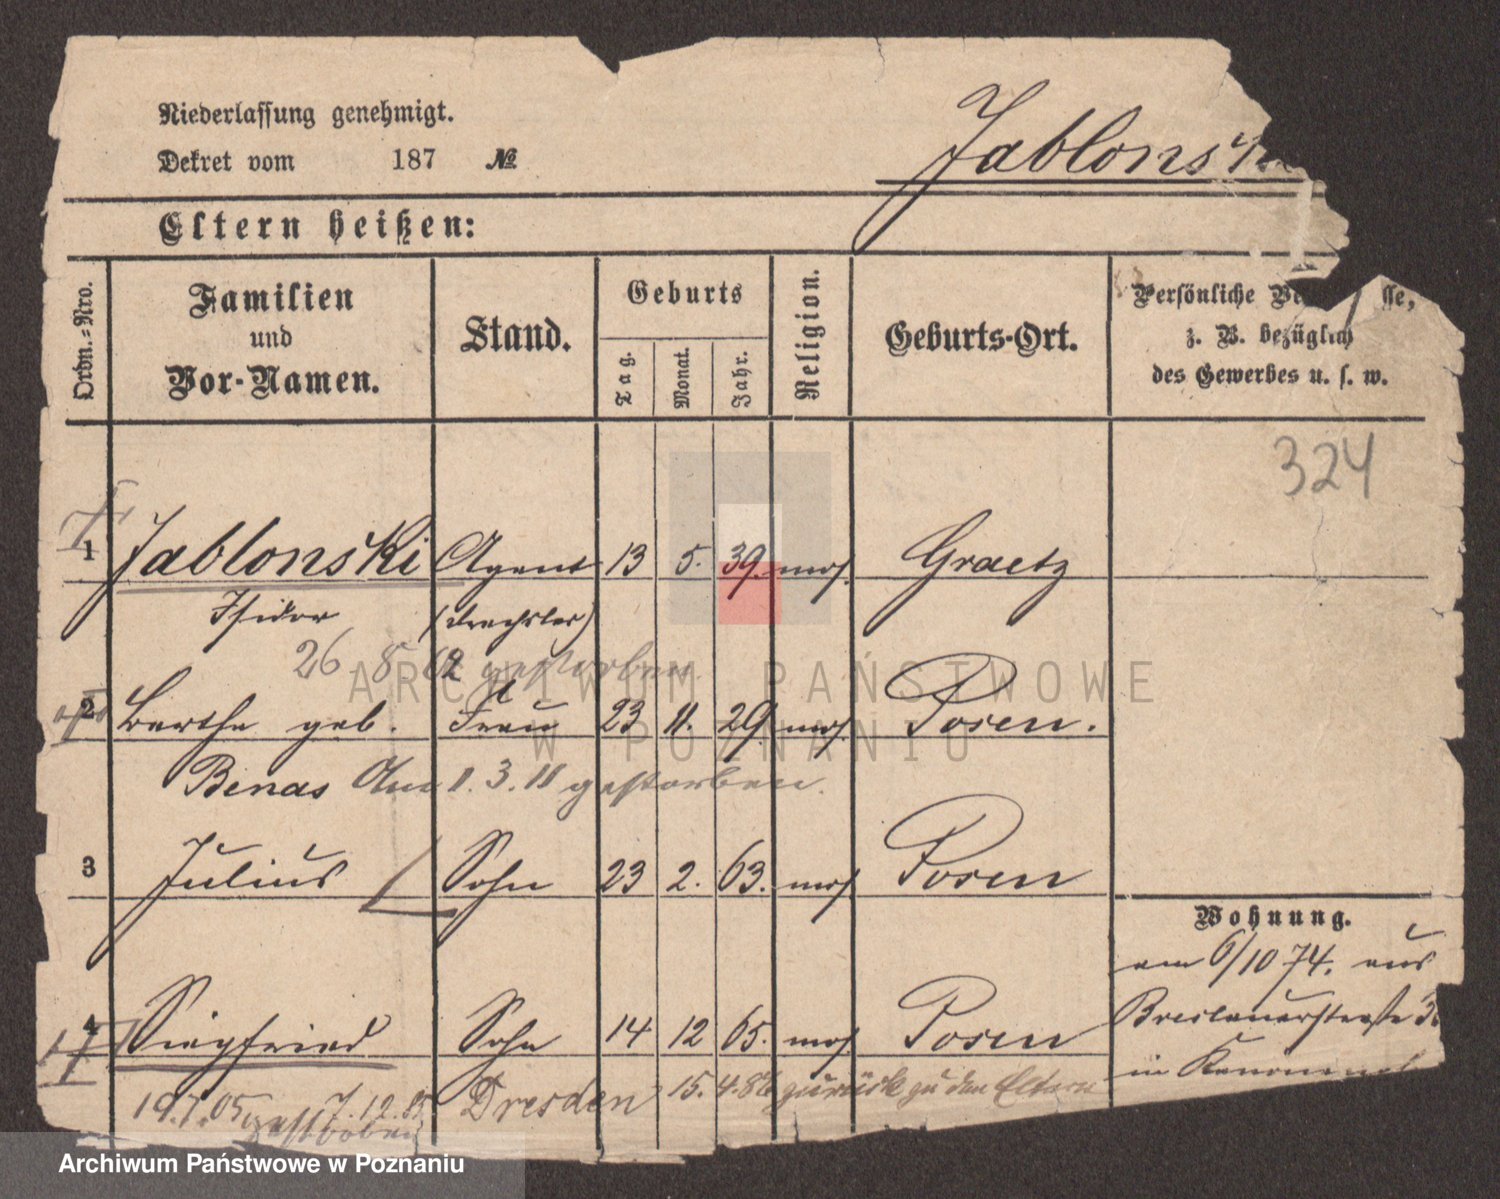 Niederlassung genehmigt.
Dekret vom 187 №
Jablonski
Eltern heißen:
Ordn.-Nro.
Familien und Vor-Namen.
Stand.
Geburts
Tag.
Monat.
Jahr.
Religion.
Geburts-Ort.
Persönliche
z. B. bezüglich
des Gewerbes u. s. w.
324
1 Jablonski Agent 13 5. 39. mos. Graetz
Isidor (Drechsler)
26 8 gestorben
2 Berthe geb. Frau 23 11. 29. mos. Posen.
Benas Am 1. 3. 11 gestorben.
3 Julius Sohn 23 2. 63. mos. Posen
Wohnung.
am 6/10 74. aus
4 Siegfried Sohn 14 12 65. mos. Posen
Breslauerstraße
in
19.7.05 gestorben 7.12.85 Dresden 15.4.86 zurück zu den Eltern
ARCHIWUM PAŃSTWOWE
W POZNANIU
Archiwum Państwowe w Poznaniu